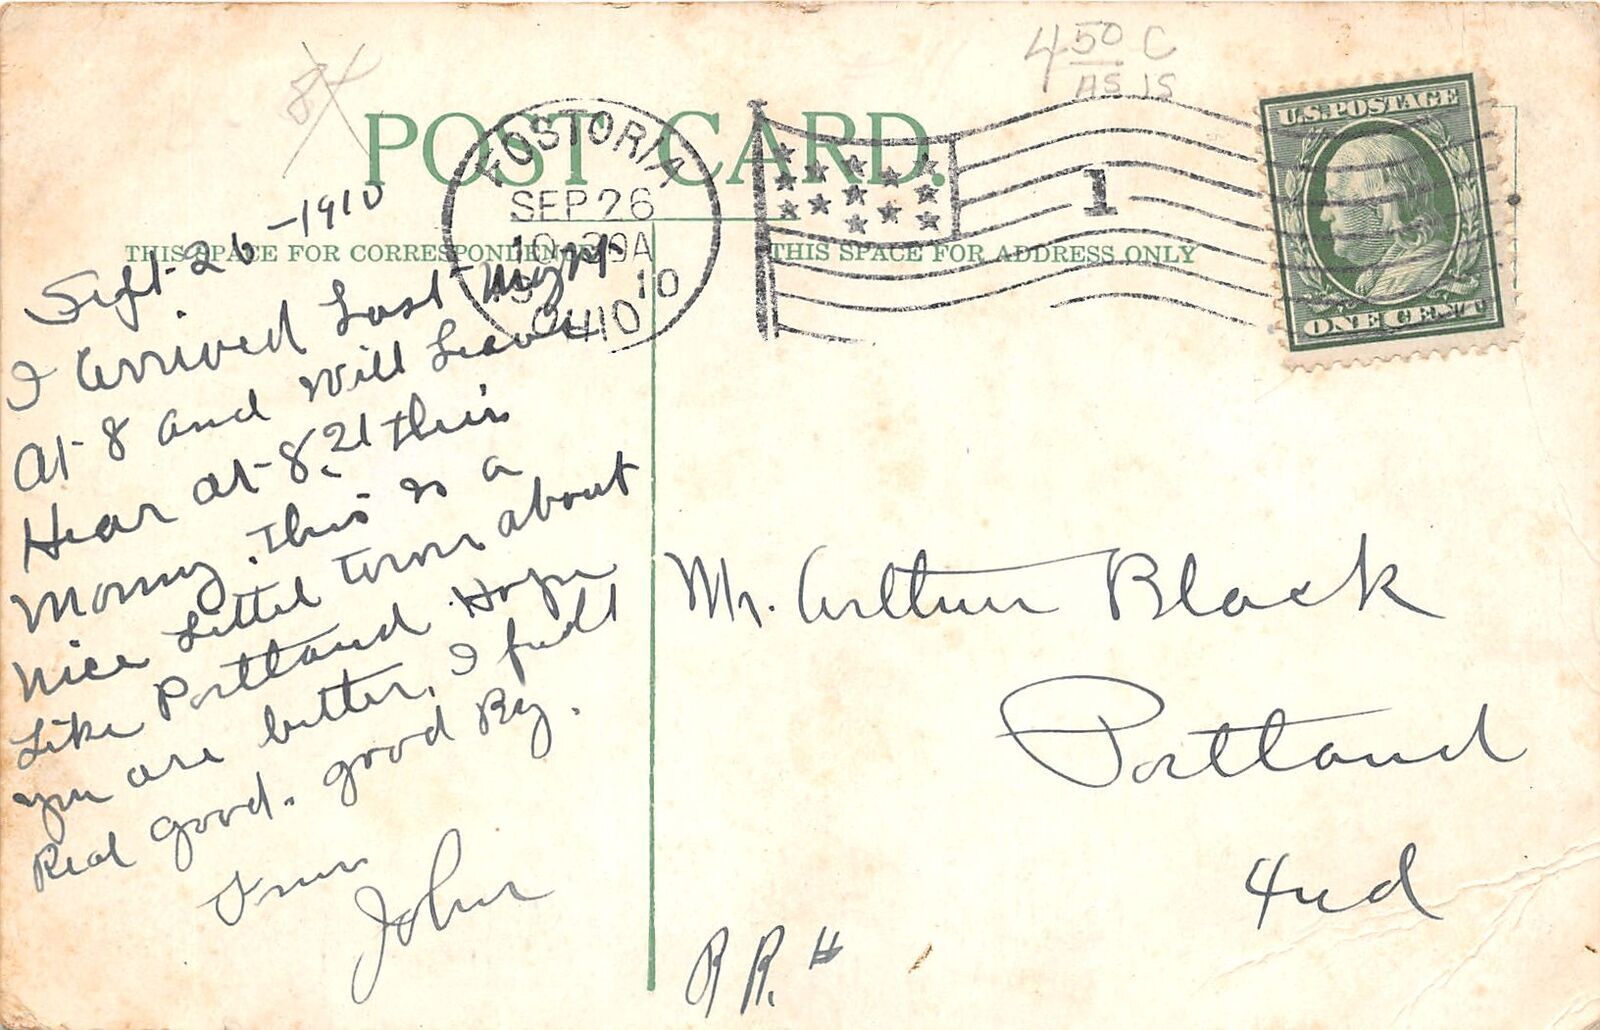 4 50 C
AS IS
8
POST CARD.
FOSTORIA
SEP 26
10-30A
10
OHIO
1
U.S. POSTAGE
ONE CENT
THIS SPACE FOR CORRESPONDENCE
THIS SPACE FOR ADDRESS ONLY
Sept-26-1910
I arrived Last Night
At-8 and Will Leave
Hear at-8,21 this
Morny. This is a
Nice Littel town about
Like Portland. Hope
you are better, I feell
Real good. good By.
From
John
Mr. Arthur Black
Portland
Ind
R R. #